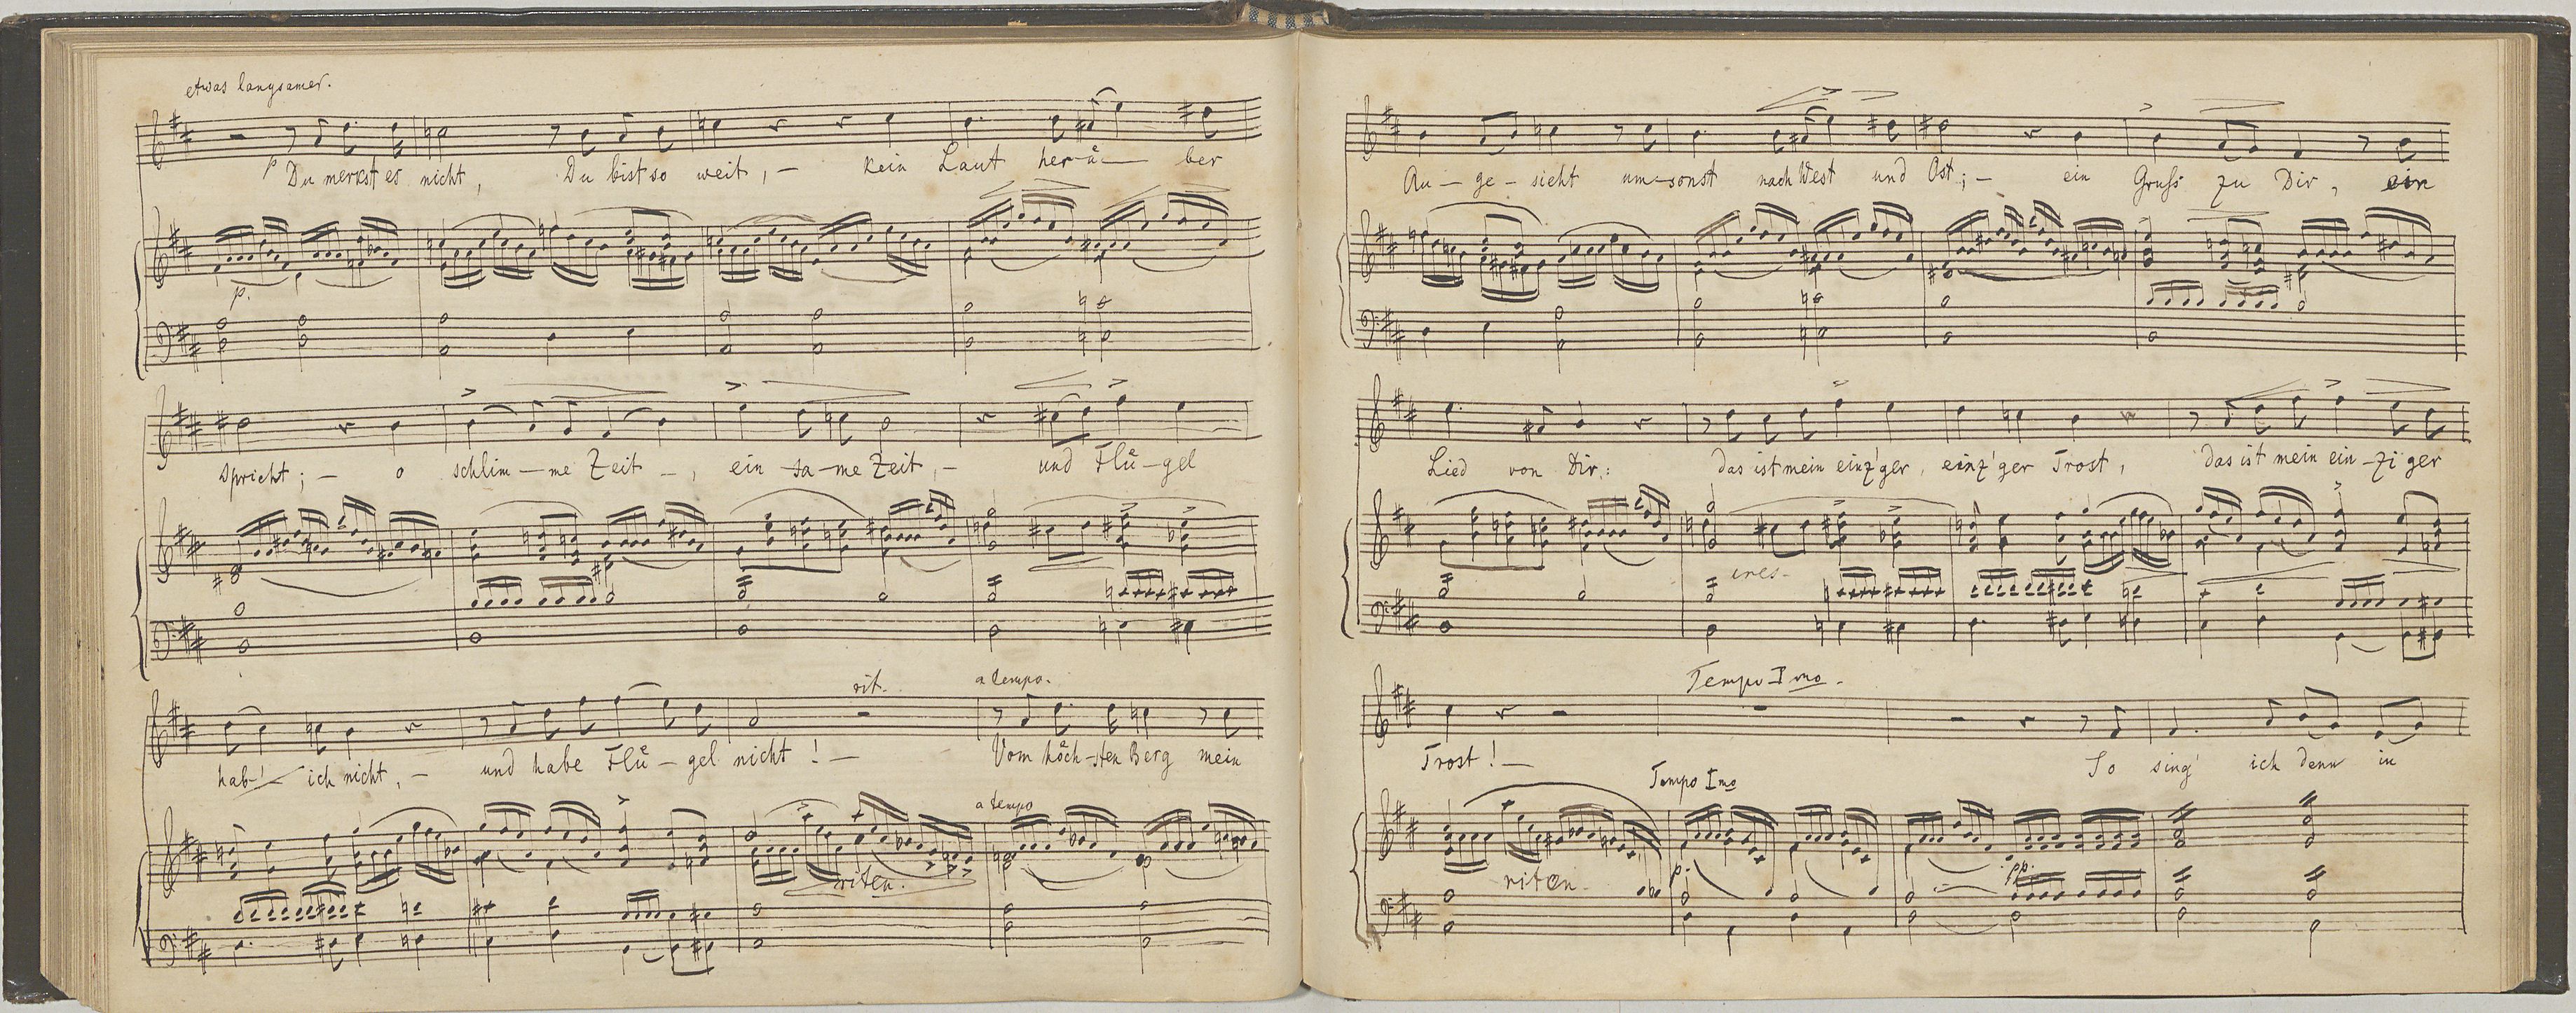 etwas langsamer.
p Du merkst es nicht, Du bist so weit, – kein Laut her-ü-ber
p.
spricht; – o schlim-me Zeit –, ein-sa-me Zeit, – und Flü-gel
rit. a tempo.
hab' – ich nicht, – und habe Flü-gel nicht! –  Vom höch-sten Berg mein
a tempo
riten.
An-ge-sicht um-sonst nach West und Ost; – ein Gruß zu Dir, ein
Lied von Dir: das ist mein einz'ger, einz'ger Trost, das ist mein ein-zi ger
cres-
Tempo Imo.
Trost! – So sing' ich denn in
Tempo Imo
riten. p. pp.